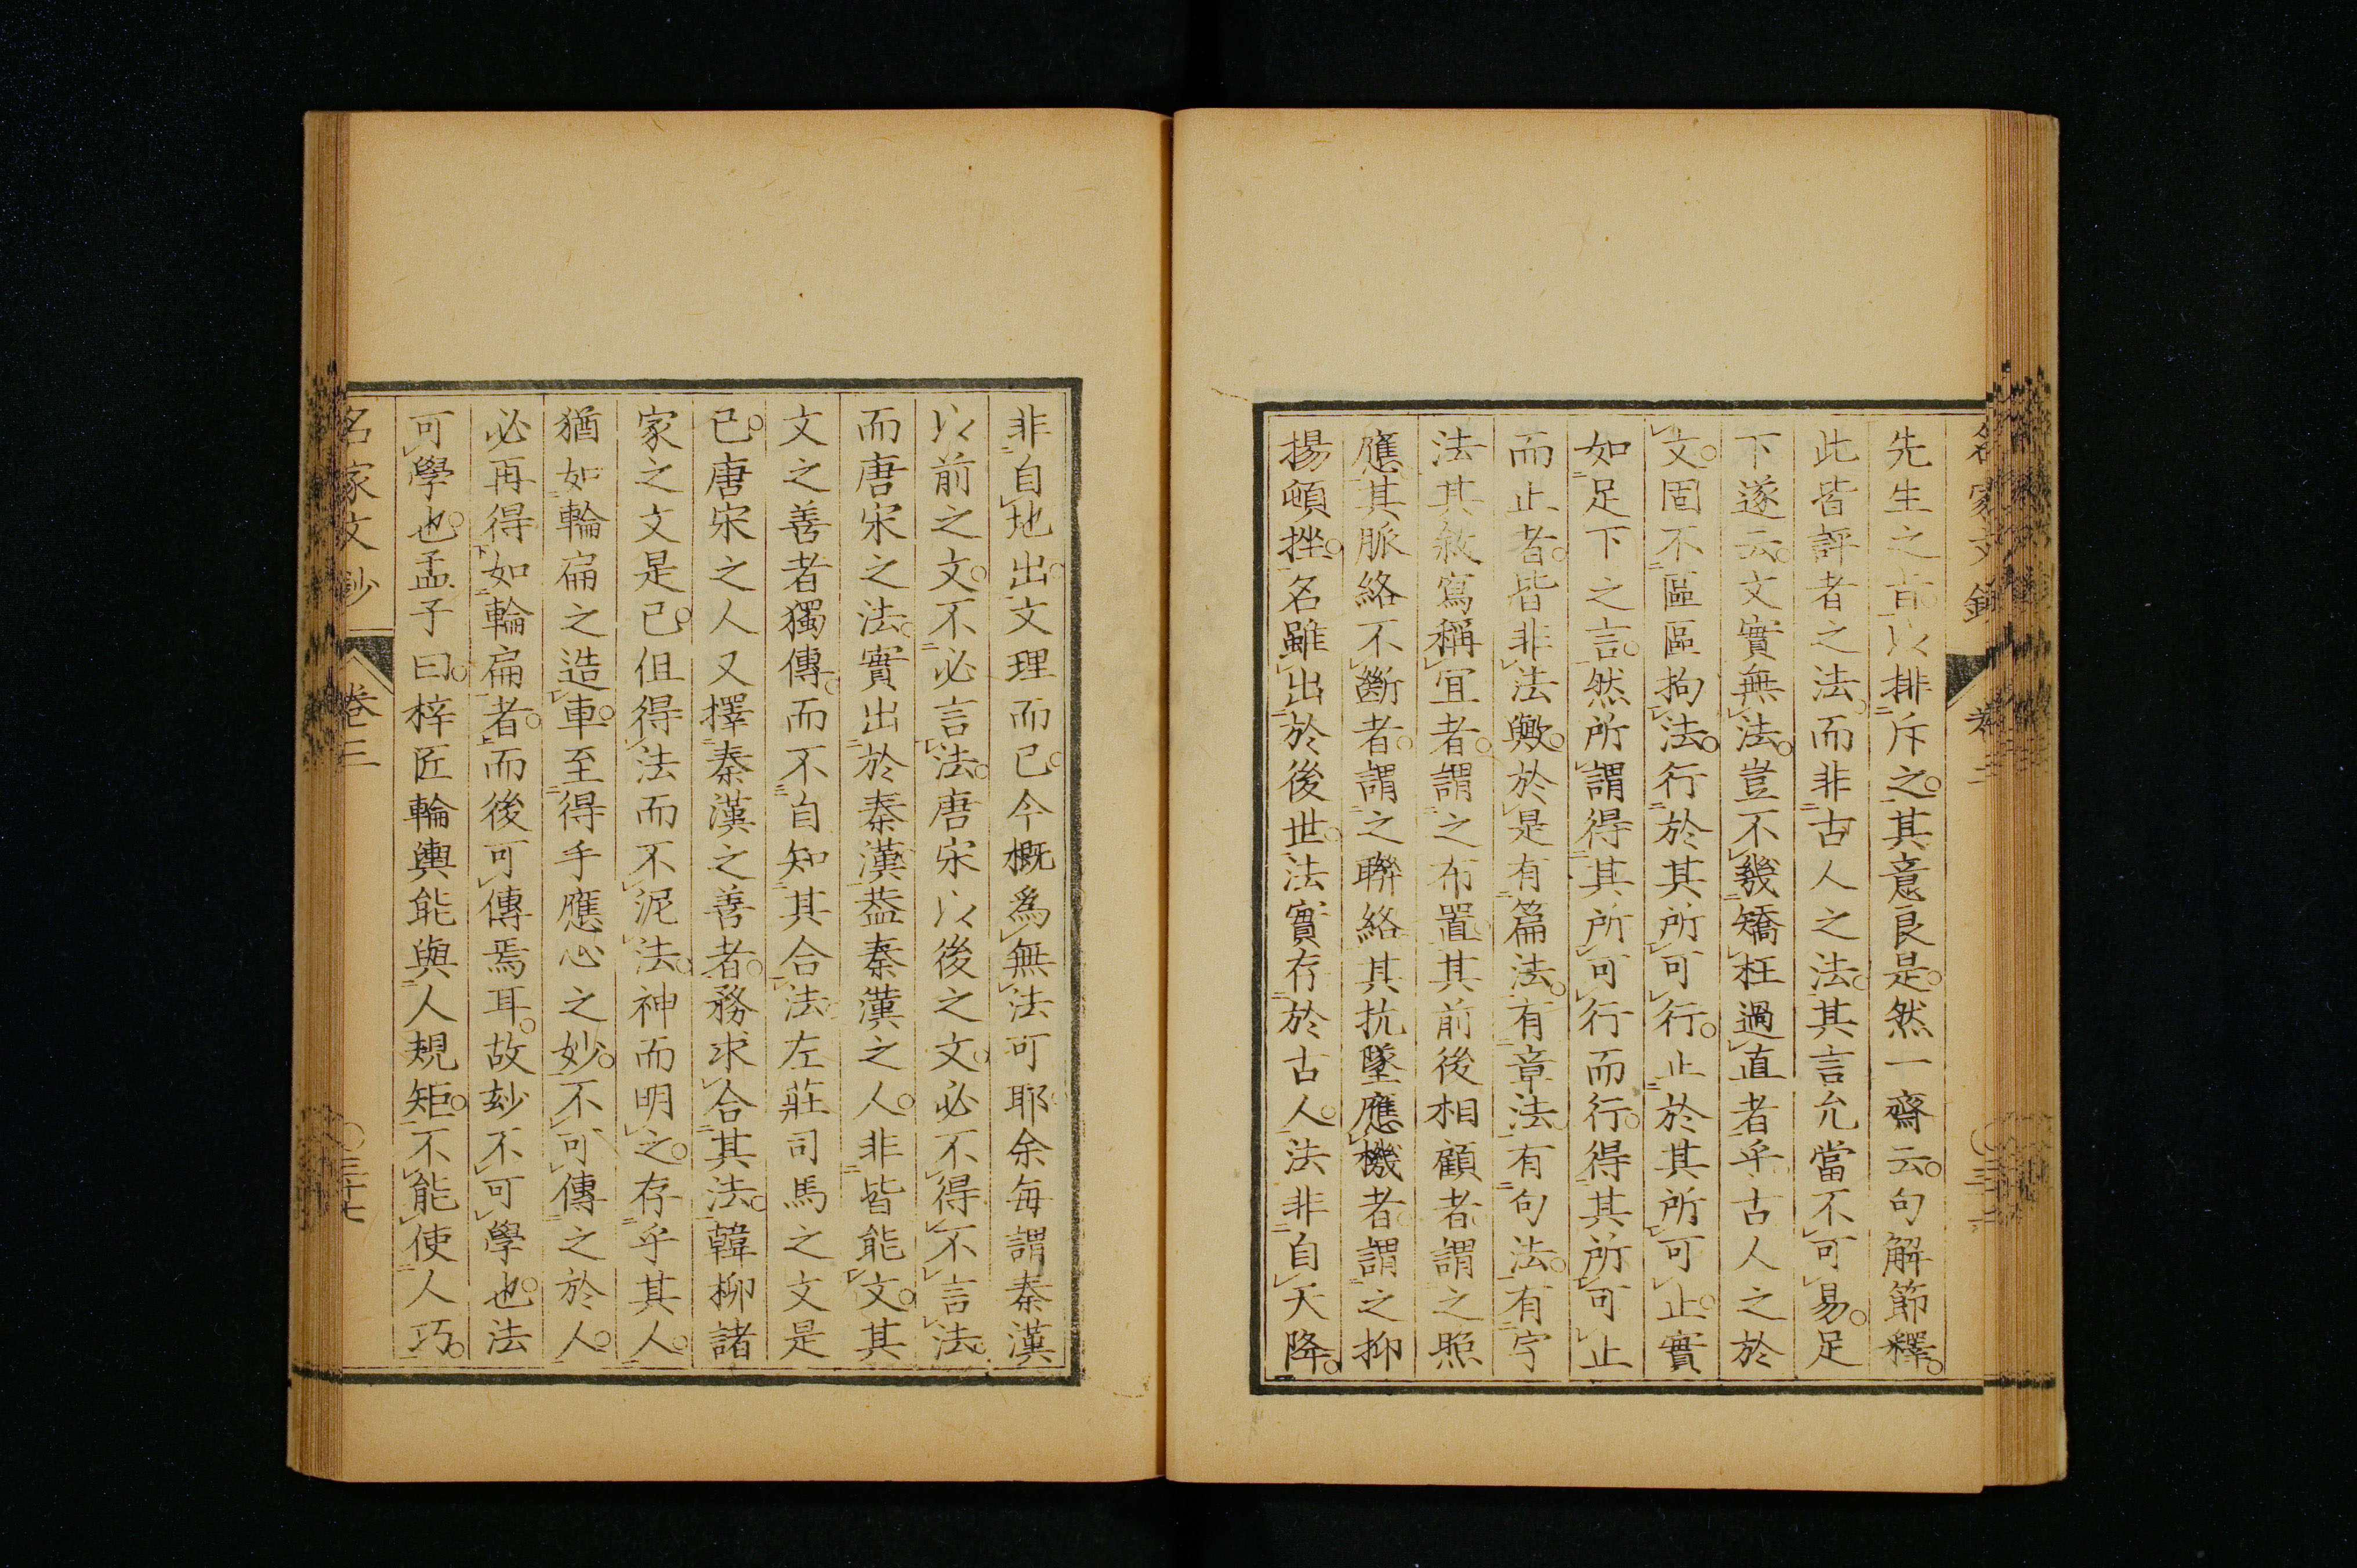 先生之言。以排斥之。其意良是。然一齋云。句解節釋。
此皆評者之法。而非古人之法。其言允當不可易。足
下遂云。文實無法。豈不幾矯枉過直者乎。古人之於
文。固不區區拘法。行於其所可行。止於其所可止。實
如足下之言。然所謂得其所可行而行。得其所可止
而止者。皆非法歟。於是有篇法。有章法。有句法。有字
法。其敘寫稱宜者。謂之布置。其前後相顧者。謂之照
應。其脈絡不斷者。謂之聯絡。其抗墜應機者。謂之抑
揚頓挫。名雖出於後世。法實存於古人。法非自天降。
非自地出。文理而已。今概爲無法可耶。余每謂秦漢
以前之文。不必言法。唐宋以後之文。必不得不言法。
而唐宋之法。實出於秦漢。葢秦漢之人。非皆能文。其
文之善者獨傳。而不自知其合法。左莊司馬之文是
已。唐宋之人。又擇秦漢之善者。務求合其法。韓柳諸
家之文是已。但得法而不泥法。神而明之。存乎其人。
猶如輪扁之造車。至得手應心之妙。不可傳之於人。
必再得如輪扁者。而後可傳焉耳。故玅不可學也。法
可學也。孟子曰。梓匠輪輿能與人規矩。不能使人巧。
名家文鈔 卷三 〇三十七